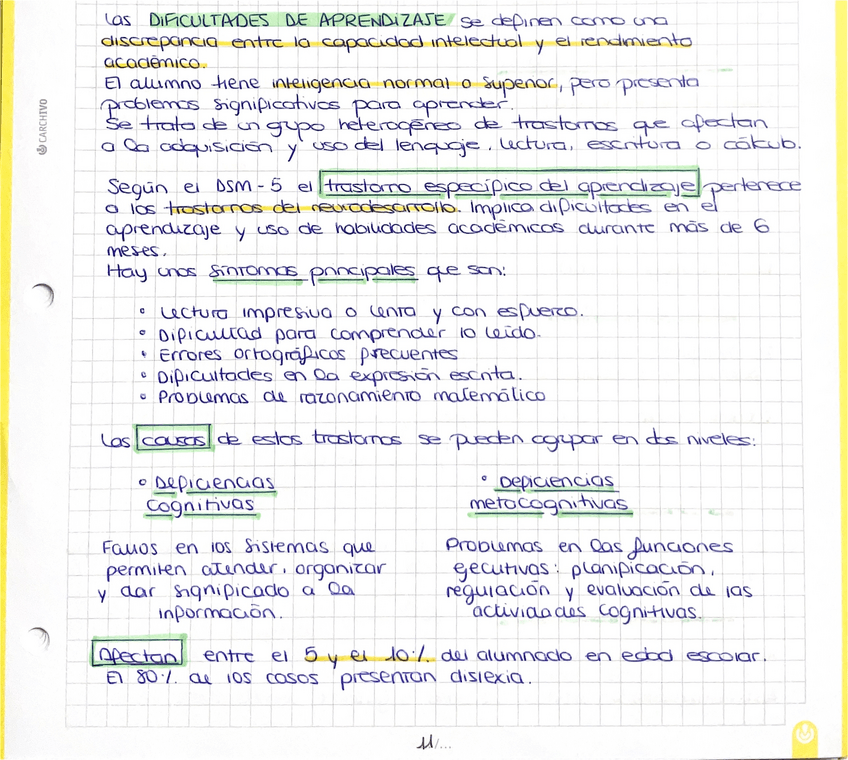 Las DIFICULTADES DE APRENDIZAJE se definen como una
discrepancia entre la capacidad intelectual y el rendimiento
académico.
El alumno tiene inteligencia normal o superior, pero presenta
problemas significativos para aprender.
Se trata de un grupo heterogéneo de trastornos que afectan
a la adquisición y uso del lenguaje, lectura, escritura o cálculo.
CARCHIVO
Según el DSM-5 el trastorno específico del aprendizaje pertenece
a los trastornos del neurodesarrollo. Implica dificultades en el
aprendizaje y uso de habilidades académicas durante más de 6
meses.
Hay unos síntomas principales que son:
• Lectura impresiva o lenta y con esfuerzo.
• Dificultad para comprender lo leído.
• Errores ortográficos frecuentes
• Dificultades en la expresión escrita.
• Problemas de razonamiento matemático
Las causas de estos trastornos se pueden agrupar en dos niveles:
• Deficiencias
cognitivas
Fallos en los sistemas que
permiten atender, organizar
y dar significado a la
información.
• Deficiencias
metacognitivas
Problemas en las funciones
ejecutivas: planificación,
regulación y evaluación de las
actividades cognitivas.
Afectan entre el 5 y el 10% del alumnado en edad escolar.
El 80% de los casos presentan dislexia.
11/...